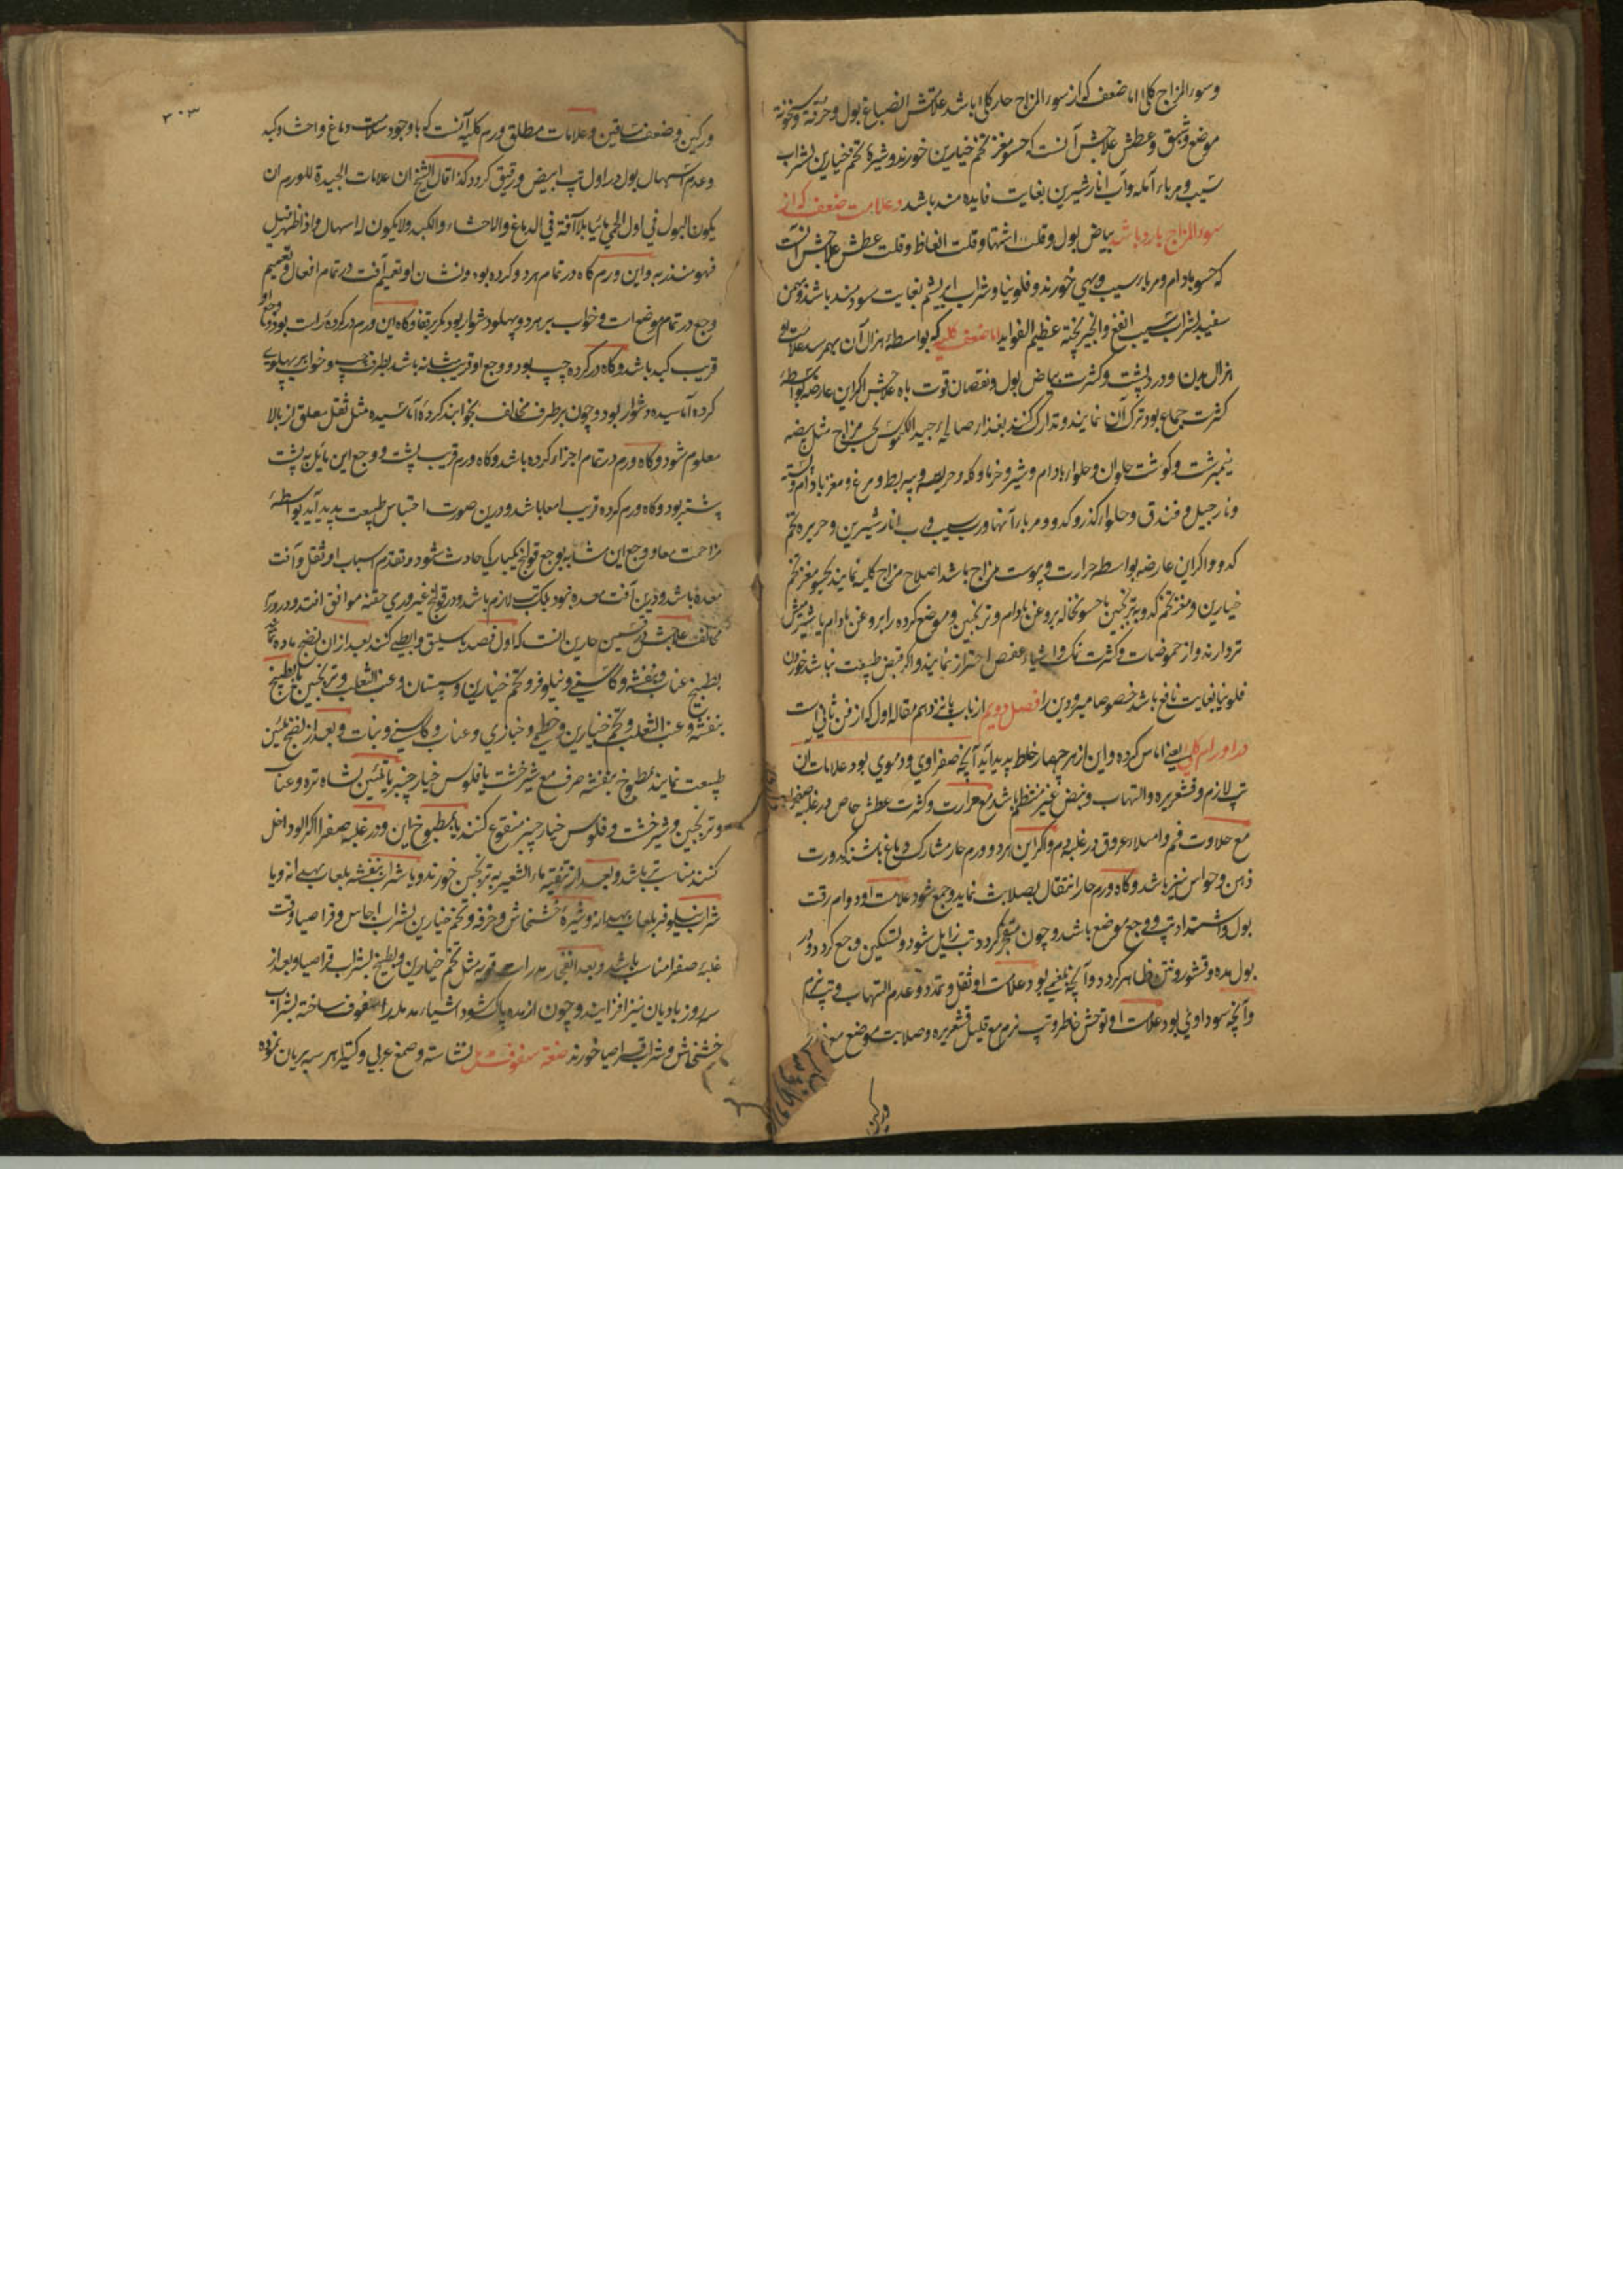 وسوءالمزاج کلی اما ضعف که از سوءالمزاج حار کلی باشد علامتش انصباغ بول وحرقة وسخونة
موضع وشبق وعطش علاجش آنست که حسو مغز تخم خیارین خورند وشیرهٔ تخم خیارین بشراب
سیب ومرباء آمله وآب انار شیرین بغایت فایده مند باشد وعلامت ضعف که از
سوءالمزاج بارد باشد بیاض بول وقلت اشتها وقلت انعاظ وقلت عطش علاجش آنست
که حسو بادام ومرباء سیب وبهی خورند وفلونیا وشراب ابریشم بغایت سودمند باشد وبهمن
سفید بشراب سیب انفع وانجیر پخته عظیم الفواید اما ضعف کلیه که بواسطهٔ هزال آن بهم رسد علامت او
هزال بدن ودرد پشت وکثرت بیاض بول ونقصان قوت باه علاجش اگر این عارضه بواسطهٔ
کثرت جماع بود ترک آن نمایند وتدارک کنند بغذاء صالح جید الکیموس بحسب مزاج مثل بیضه
نیمبرشت وگوشت حلوان وحلواء بادام وشیر وخرما وکله وهریسه وپیه بط ومرغ ومغز بادام وپسته
ونارجیل وفندق وحلواء گذر وکدو ومرباء آنها ورب سیب ورب انار شیرین وحریره تخم
کدو واگر این عارضه بواسطه حرارت ویبوست مزاج باشد اصلاح مزاج کلیه نمایند بحسو مغز تخم
خیارین ومغز تخم کدو بترنجبین یا حسو نخاله بروغن بادام وترنجبین وموضع کرده را بروغن بادام یا شیر میش
تر دارند واز حموضات وکثرت نمک واشیاء عفص احتراز نمایند واگر قبض طبیعت نباشد خوردن
فلونیا بغایت نافع باشد خصوصا مبرودین را فصل دویم از باب پانزدهم مقاله اول که از فن ثانی است
در اورام کلی یعنی اماس کرده واین از هر چهار خلط پدید آید آنچه صفراوی ودموی بود علامات آن
تپ لازم وقشعریره والتهاب ونبض غیر منتظم باشد مع حرارت وکثرت عطش خاص در غلبه صفرا
مع حلاوت فم وامتلاء عروق در غلبه دم واگر این هر دو ورم حار مشارک دماغ باشند کدورت
ذهن وحواس نیز باشد وگاه ورم حار انتقال بصلابت نماید وجمع شود علامت او دوام رقت
بول واشتداد تپ ووجع موضع باشد وچون متفجر گردد تپ زایل شود وتسکین وجع گردد ودر
بول مده وقشور ونتن ظاهر گردد وآنچه بلغمی بود علامات او ثقل وتمدد وعدم التهاب وتپ نرم
وآنچه سوداوی بود علامت او توحش خاطر وتپ نرم مع قلیل قشعریره وصلابت موضع مع
ورکین
۳۰۳
ورکین وضعف ساقین وعلامات مطلق ورم کلیه آنست که باوجود سلامت دماغ واحشا وکبد
وعدم اسهال بول در اول تپ ابیض ورقیق گردد کذا قال الشیخ ان علامات الجیدة للورم ان
یکون البول فی اول الحمی مائیا بلا آفة فی الدماغ والاحشاء والکبد ولا یکون له اسهال
فهو منذر به واین ورم گاه در تمام هر دو کرده بود ونشان او تعمیم آفت در تمام افعال وتعمیم
وجع در تمام موضع است وخواب بر هر دو پهلو دشوار بود مگر بر قفا وگاه این ورم در کردهٔ راست بود
قریب کبد باشد وگاه در کرده چپ بود ووجع او قریب مثانه باشد بطرف چپ وخواب بر پهلوی
کرده آماسیده دشوار بود وچون بر طرف مخالف بخوابند کردهٔ آماسیده مثل ثقل معلق از بالا
معلوم شود وگاه ورم در تمام اجزاء کرده باشد وگاه ورم قریب پشت ووجع این مایل به پشت
بیشتر بود وگاه ورم کرده قریب امعا باشد ودرین صورت احتباس طبیعت پدید آید بواسطهٔ
مزاحمت معا ووجع این مشابه بوجع قولنج یکبارگی حادث شود وتقدم اسباب او ثقل وآفت
معده باشد ودرین آفت معده نبود بلکه تپ لازم باشد ودر قولنج غیر وری حقنه موافق افتد ودر ورم
مخالف علاجش در قسمین حارین آنست که اول فصد باسلیق وابطی کنند بعد از آن نضج ماده نمایند
بطبیخ عناب وبنفشه وکاسنی ونیلوفر وتخم خیارین وسپستان وعنب الثعلب وترنجبین یا بطبیخ
بنفشه وعنب الثعلب وتخم خیارین وخطمی وخبازی وعناب وکاسنی ونبات وبعد از نضج تلیین
طبیعت نمایند بمطبوخ بنفشه صرف مع شیرخشت یا فلوس خیارچنبر یا تلیین بشاه‌تره وعناب
وترنجبین وشیرخشت وفلوس خیارچنبر منقوع کنند یا بمطبوخ این ودر غلبه صفرا اگر آلو داخل
کنند مناسب‌تر باشد وبعد از تنقیه ماءالشعیر به ترنجبین خورند ویا شراب بنفشه بلعاب بهدانه ویا
شراب نیلوفر بلعاب بهدانه وشیرهٔ خشخاش وخرفه وتخم خیارین بشراب اجاص وقراصیا وقت
غلبه صفرا مناسب باشد وبعد انفجار مدرات قویه مثل تخم خیارین وبطیخ بشراب قراصیا وبعد از
سه روز بادیان نیز افزایند وچون از مده پاک شود اشیاء مدمله را سفوف ساخته بشراب
خشخاش وشراب قراصیا خورند صفة سفوف مدمل نشاسته وصمغ عربی وکتیرا هر سه بریان نموده